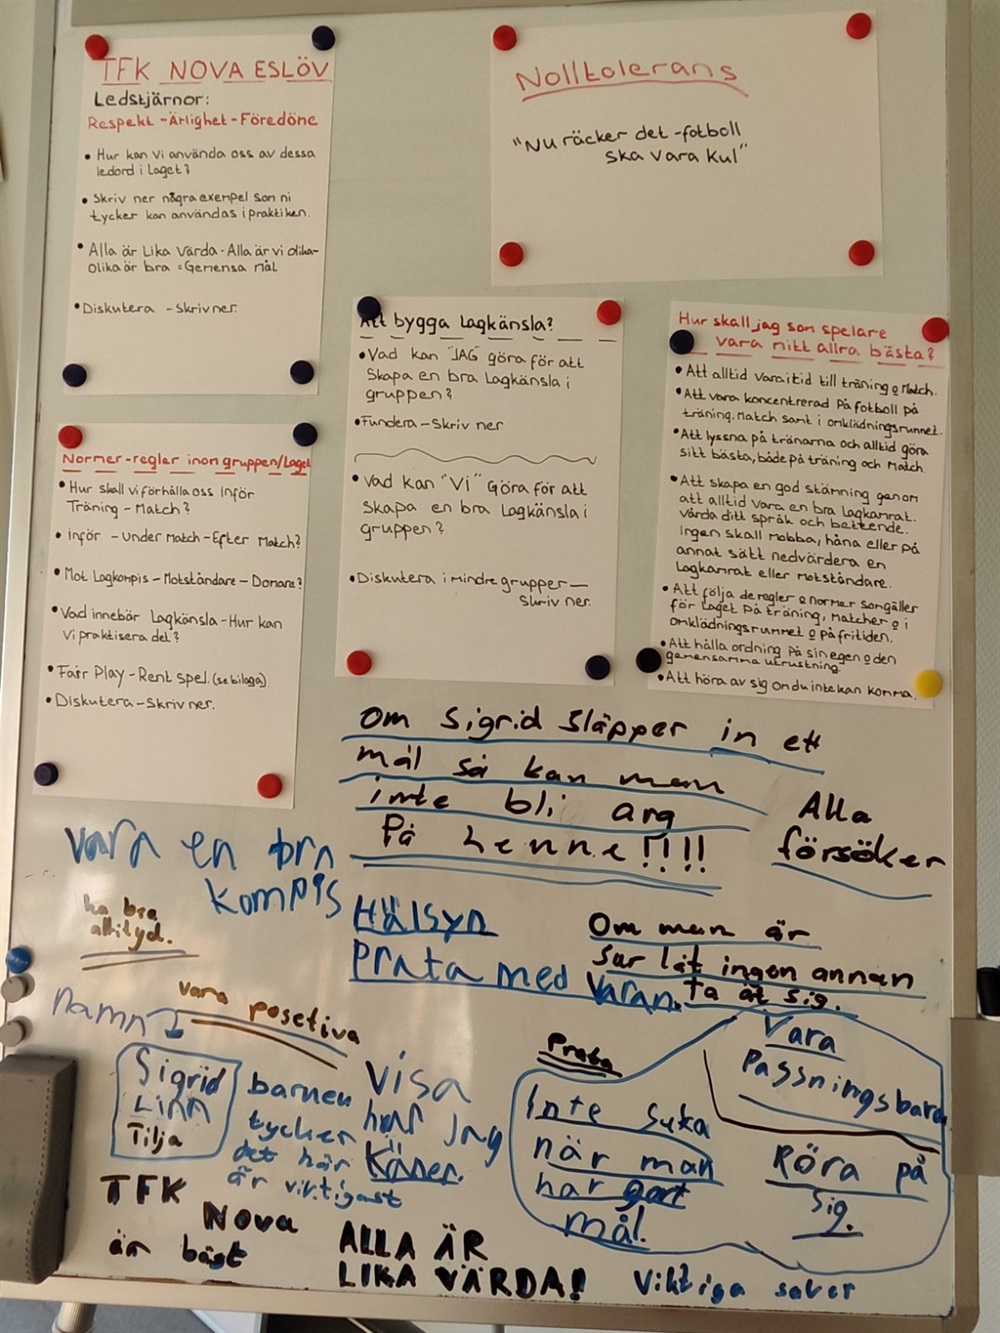 TFK NOVA ESLÖV
Ledstjärnor:
Respekt-Ärlighet-Föredöme
• Hur kan vi använda oss av dessa
ledord i laget?
• Skriv ner några exempel som ni
tycker kan användas i praktiken.
• Alla är Lika Värda - Alla är vi olika-
olika är bra = Gemensa mål
• Diskutera - Skriv ner.
Nolltolerans
"Nu räcker det - fotboll
ska vara kul"
Att bygga Lagkänsla?
• Vad kan "JAG" göra för att
Skapa en bra Lagkänsla i
gruppen?
• Fundera - Skriv ner
• Vad kan "VI" Göra för att
Skapa en bra Lagkänsla i
gruppen?
• Diskutera i mindre grupper -
Skriv ner.
Hur skall jag som spelare
vara mitt allra bästa?
• Att alltid vara i tid till träning o Match.
• Att vara koncentrerad på fotboll på
träning. Match samt i omklädningsrummet.
• Att lyssna på tränarna och alltid göra
sitt bästa, både på träning och Match.
• Att skapa en god stämning genom
att alltid vara en bra lagkamrat.
Vårda ditt språk och beteende.
Ingen skall mobba, håna eller på
annat sätt nedvärdera en
Lagkamrat eller motståndare.
• Att följa de regler o normer som gäller
för laget på träning, matcher o i
omklädningsrummet o på fritiden.
• Att hålla ordning på sin egen o den
gemensamma utrustning.
• Att höra av sig om du inte kan komma.
Normer-regler inom gruppen/Laget
• Hur skall vi förhålla oss inför
Träning - Match?
• Inför - Under Match - Efter Match?
• Mot Lagkompis - Motståndare - Domare?
• Vad innebär Lagkänsla - Hur kan
vi praktisera det?
• Fair Play - Rent spel. (se bilaga)
• Diskutera - Skriv ner.
Om Sigrid Släpper in ett
mål så kan man
inte bli arg
På henne!!!!
Alla
försöker
vara en bra
kompis
ha bra
attityd.
Hälsyn
Prata med Varan.
Om man är
Sur låt ingen annan
ta åt sig.
namn
vara posetiva
Sigrid
Linn
Tilja
barnen
tycker
det här
är viktigast
Visa
hur jag
Käner.
Prata
Inte suka
när man
har gort
mål.
Vara
Passningsbara
Röra på
Sig.
TFK
Nova
är bäst
ALLA ÄR
LIKA VÄRDA!
Viktiga saker